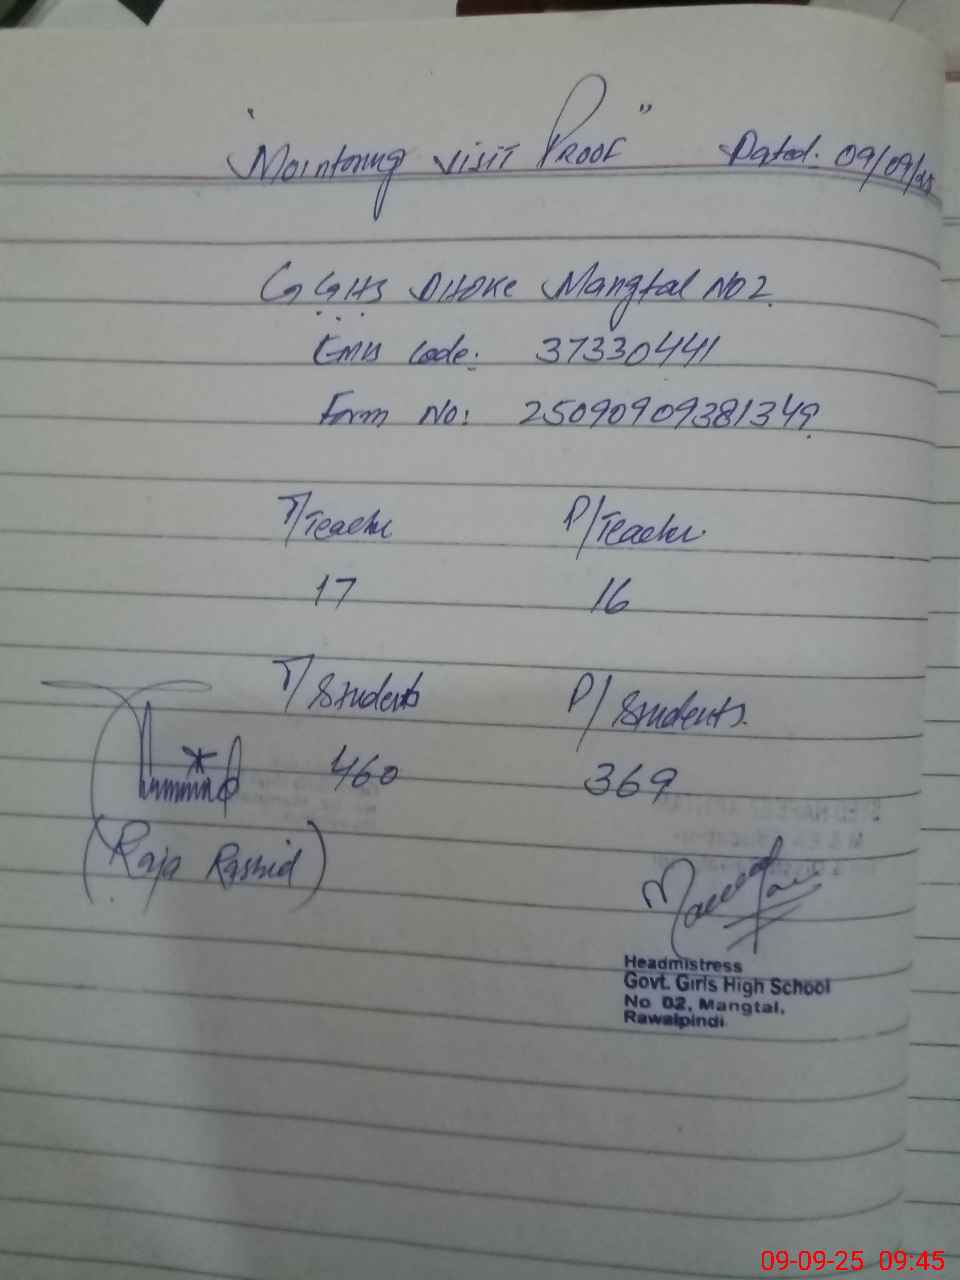 "Mointoring visit Proof" Dated: 09/09/25
GGHS DHOKE Mangtal NO 2
EMIS Code: 37330441
Form No: 25090909381349
T/Teacher P/Teacher
17 16
T/Students P/Students
460 369
(Raja Rashid)
Headmistress
Govt. Girls High School
No 02, Mangtal,
Rawalpindi
09-09-25 09:45